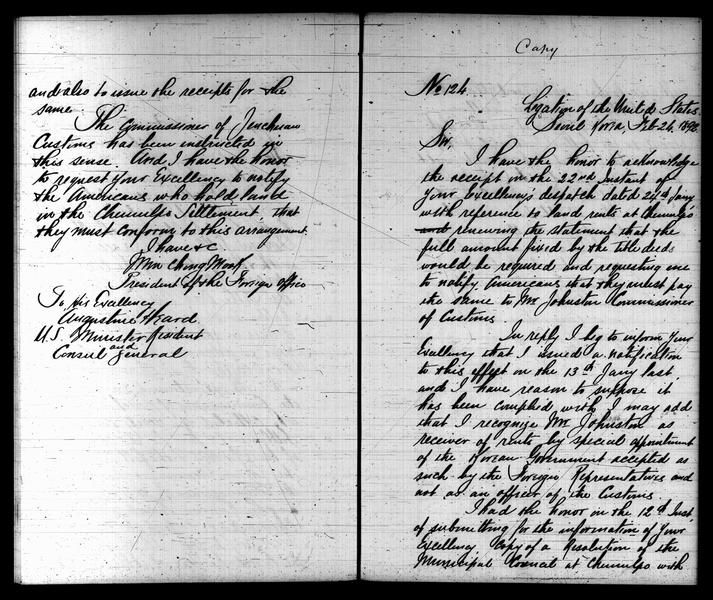 and also to issue the receipts for the
same
The Commissioner of Jenchuan
Customs has been instructed in
this sense. And I have the honor
to request Your Excellency to notify
the Americans who hold land
in the Chemulpo Settlement, that
they must conform to this arrangement.
I have &c
Min Chong Mook
President of the Foreign Office
To His Excellency
Augustine Heard
U.S. Minister Resident
and
Consul General
Copy
No 124
Legation of the United States
Seoul Korea, Feb 26, 1892
Sir,
I have the honor to acknowledge
the receipt on the 22nd Instant of
Your Excellency's despatch dated 24th Jany
with reference to land rents at Chemulpo
renewing the statement that the
full amount fixed by the title deeds
would be required and requesting me
to notify Americans that they must pay
the same to Mr Johnston Commissioner
of Customs
In reply I beg to inform Your
Excellency that I issued a notification
to this effect on the 13th Jany last
and I have reason to suppose it
has been complied with, I may add
that I recognize Mr Johnston as
receiver of rents by special appointment
of the Korean Government accepted as
such by the Foreign Representatives and
not as an officer of the Customs
I had the honor on the 12th Inst,
of submitting for the information of Your
Excellency Copy of a Resolution of the
Municipal Council at Chemulpo with